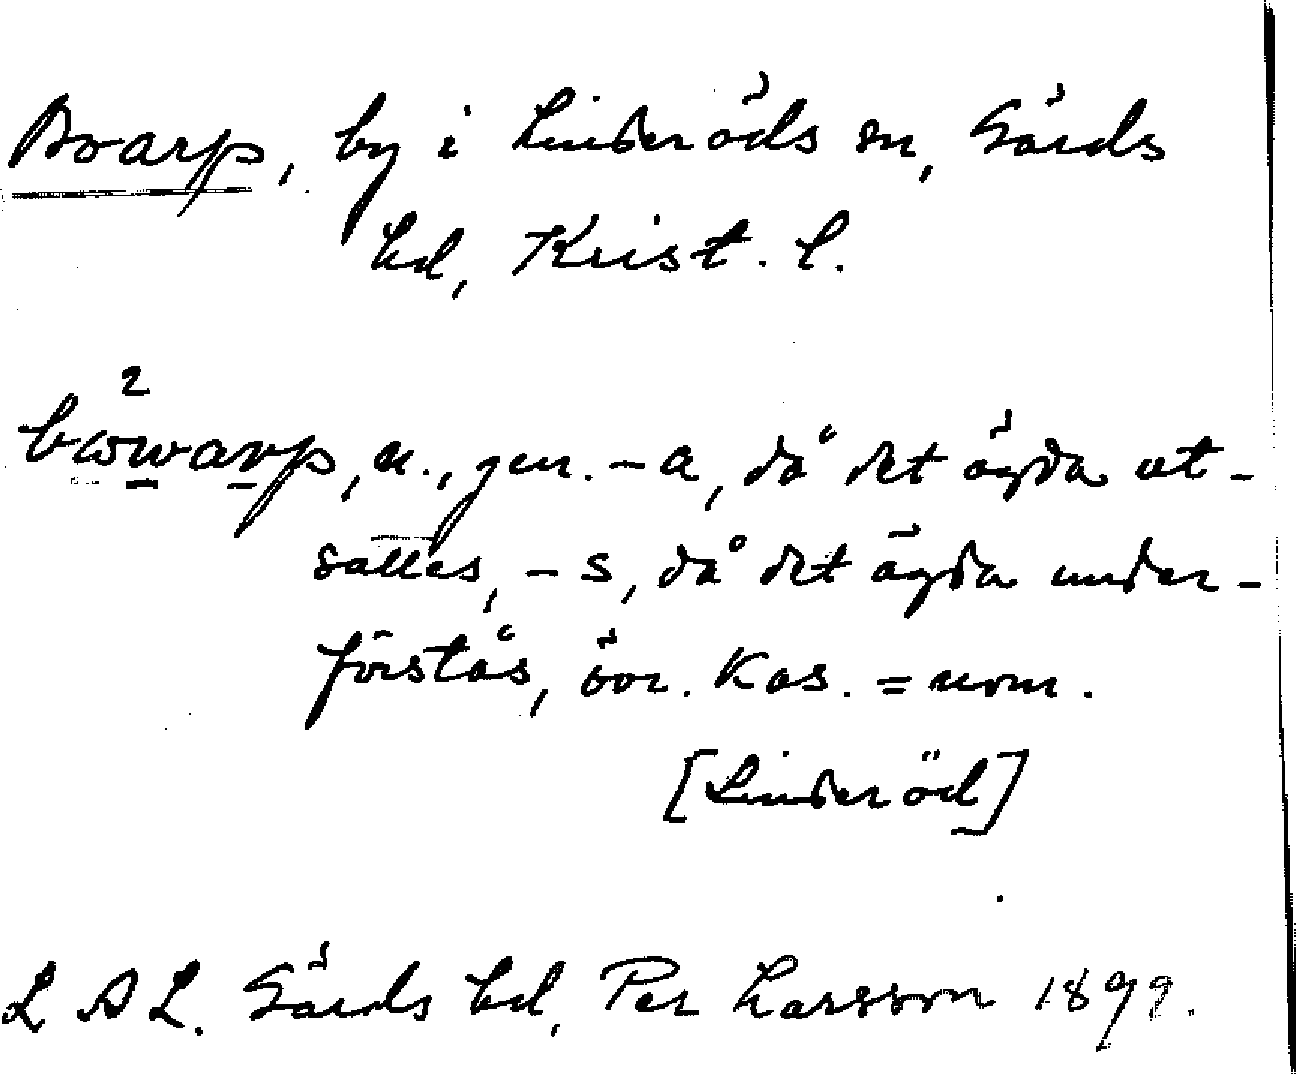 Boarp, by i Linderöds sn, Gärds
hd, Krist. l.
2
bωwarp, n., gen. -a, då det ägda ut-
sättes, -s, då det ägda under-
förstås, övr. kas. = nom.
[Linderöd]
LAL. Gärds hd, Per Larsson 1899.